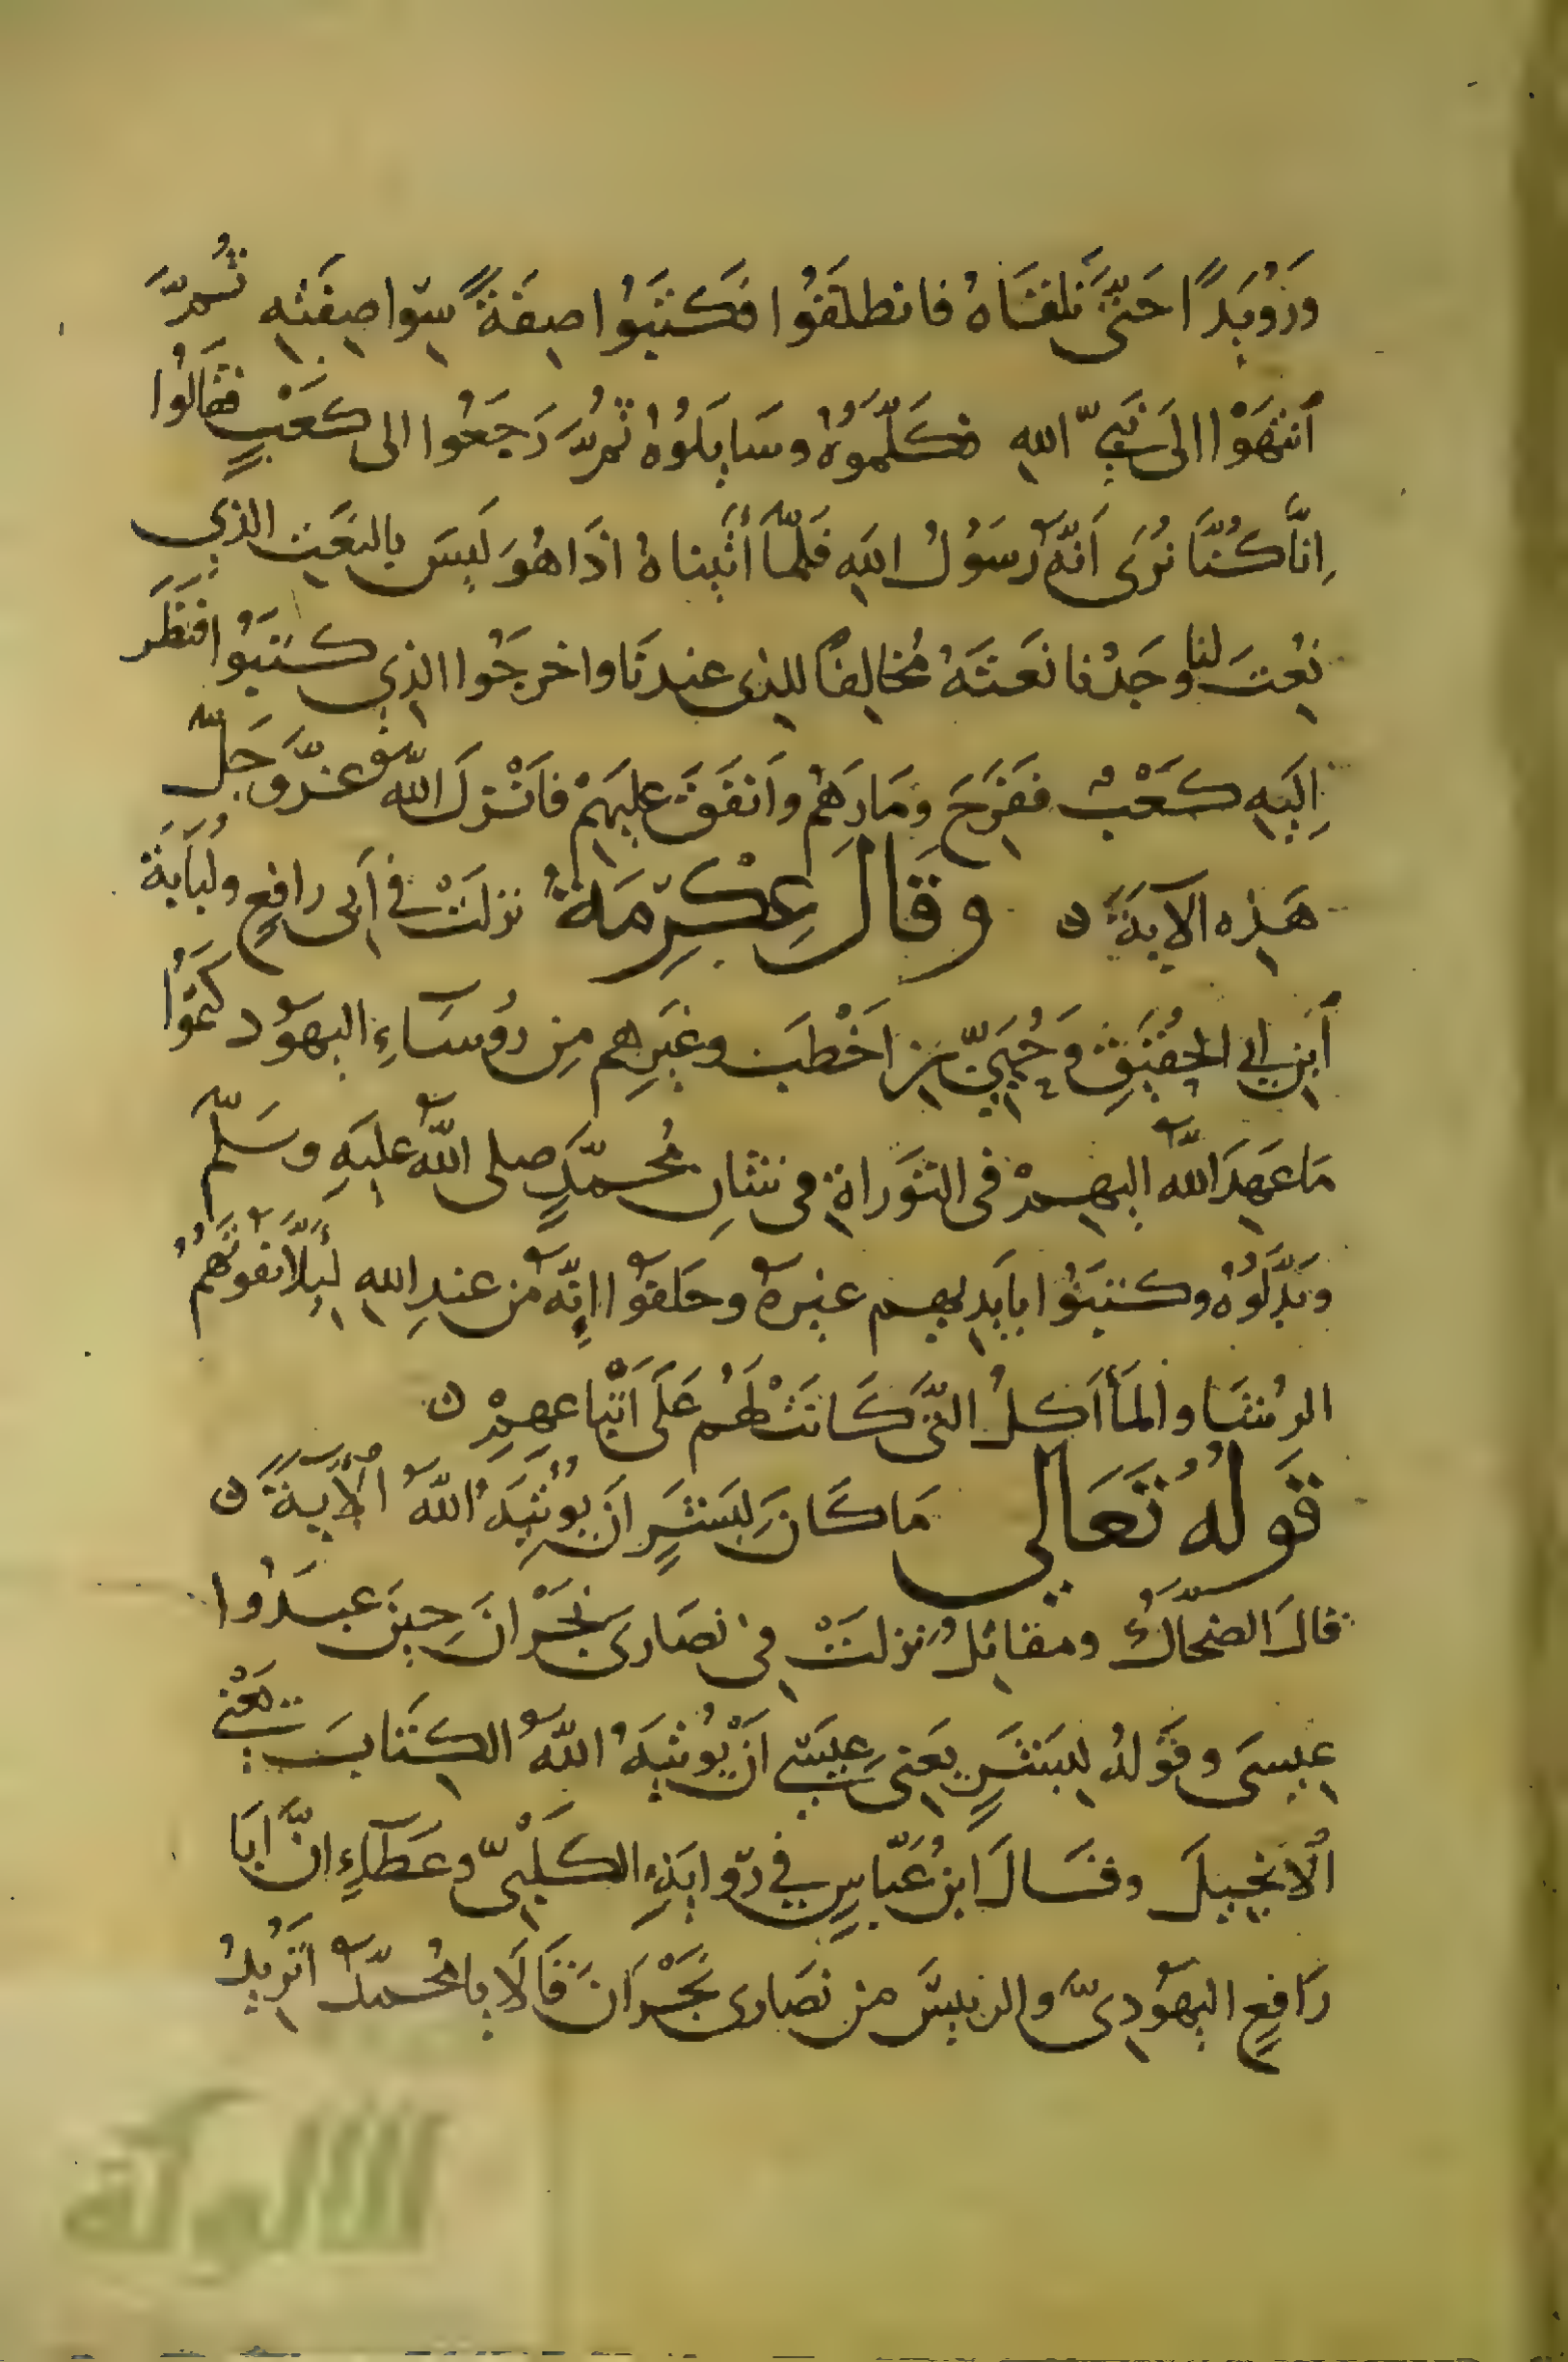 وَرُوَيدًا حَتّى نلقَاهُ فانطلَقُوا فكَتَبُوا صِفَةً سِوا صِفَتِهِ ثُمَّ
انتَهَوْا الَى نَبِيّ اللهِ فكَلَّمُوهُ وسَايَلُوهُ ثمَّ رَجَعُوا الى كَعْبٍ فقَالُوا
اِنّا كُنّا نُرَى اَنّهُ رسَوُلُ اللهِ فَلمّا أَتَيناهُ اذَا هُوَ لَيسَ بالنَعَتِ الذِي
نُعِتَ لنا وجَدْنا نَعَتَهُ مُخالِفًا للذِى عندنَا واخرجُوا الذِي كتَبُوا فنَظَر
اِلَيهِ كَعْبٌ ففَرِحَ ومَارَهُم واَنفَقَ عليهِمْ فاَنْزلَ اللهُ عزّ وجَلّ
هَذِه الايةَ ن وقَالَ عِكْرِمَةُ نزلَتْ في اَبِى رافِعٍ ولُبَابَةَ
ابنِ ابي الحُقَيقِ وَحُيَيِّ بن اَخْطَبَ وغيَرِهم مِن رؤسَاءِ اليهوُد كَتَمُوا
مَا عَهِدَ اللهُ اليهِمْ فى التَوراةِ فى شَانِ مُحمّدٍ صلى اللهُ عليَهِ وسَلّم
وبَدَّلُوهُ وكتَبَوُا باَيدِيهم غيرهُ وحَلفوُا اِنّهُ من عندِ اللهِ لِيَلّا تفوتَهُمُ
الرُشَا والمَأاَكلُ التّى كَانَتْ لَهُم عَلَى اَتْباعهِمْ ن
قَولهُ تَعَالي مَا كَانَ لِبَشَرٍ اَن يُوتِيَهُ اللهُ الآيةَ ن
قالَ الضحّاكُ ومقاتِلُ نزلَتْ فِى نصَارى نَجْرانَ حِينَ عبَدُوا
عِيسَى وقَولهُ لِبَشَرٍ يَعنِى عِيسَى اَنْ يُوتِيَهُ اللهُ الكِتَابَ يَعْنِي
الْانجِيلَ وقَالَ ابنُ عَبّاسٍ في رِوايَةِ الكَلْبِىّ وعَطَآءٍ انّ اَبَا
رَافِعٍ اليهوَدِىَّ والرئيسَ من نصَارى نَجْرَانَ قَالَا يا مُحمدُ اَتُرِيدُ
الألوكة